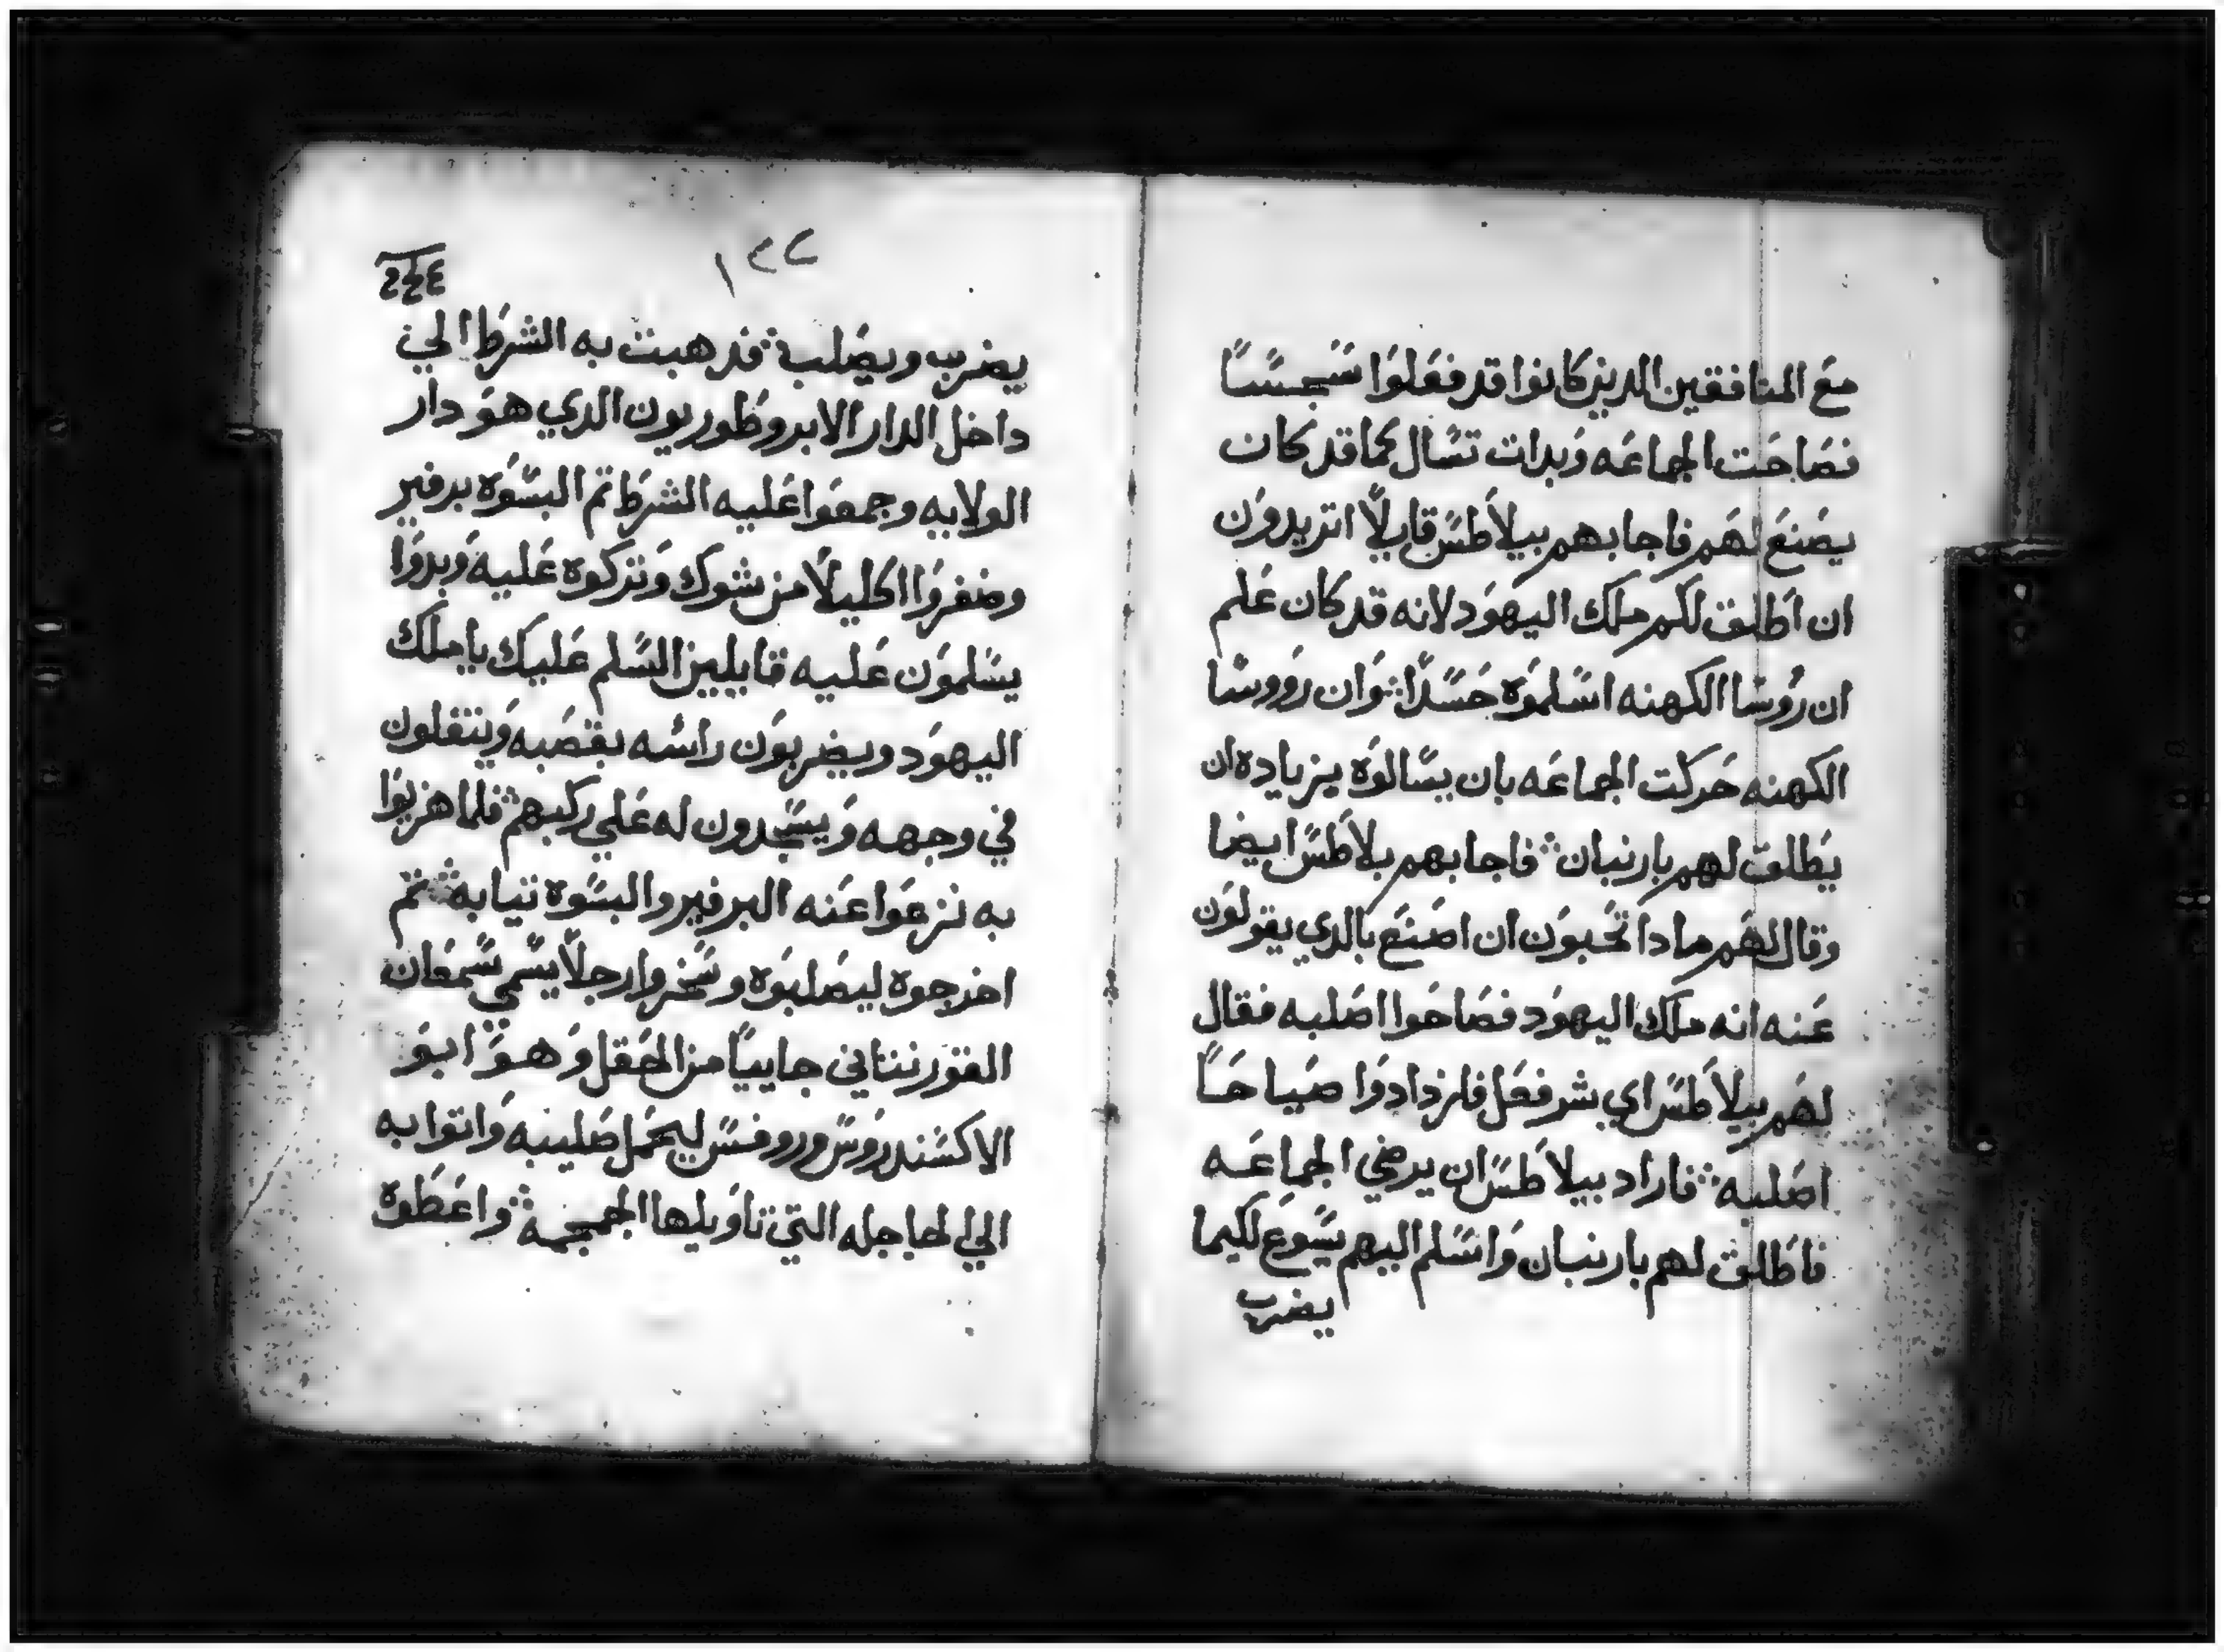 مع المنافقين الدين كانوا قد فعلوا سجسًا
فصاحت الجماعه وبدات تسال كما قد كان
يصنع لهم فاجابهم بيلاطس قايلاً اتريدون
ان اطلق لكم ملك اليهود لانه قد كان علم
ان روسا الكهنه اسلموه حسدًا وان رووسا
الكهنه حركت الجماعه بان يسالوه بزياده ان
يطلق لهم بارنبان فاجابهم بلاطس ايضا
وقال لهم مادا تحبون ان اصنع بالدي يقولون
عنه انه ملك اليهود فصاحوا اصلبه فقال
لهم بيلاطس اي شر فعل فازدادوا صياحًا
اصلبه فاراد بيلاطس ان يرضي الجماعه
فاطلق لهم بارنبان واسلم اليهم يسوع لكيما
يضرب
١٣٢
يضرب ويصلب فدهبت به الشرط الي
داخل الدار الابروطوريون الدي هو دار
الولايه وجمعوا عليه الشرط تم البسوه برفير
وضفروا اكليلاً من شوك وتركوه عليه وبدوا
يسلمون عليه قايلين السلم عليك يا ملك
اليهود ويضربون راسه بقصبه ويتفلون
في وجهه ويسجدون له علي ركبهم فلما هزيوا
به نزعوا عنه البرفير والبسوه تيابه تم
اخرجوه ليصلبوه وسخروا رجلاً يسمي سمعان
القورنناني جاييًا من الحقل وهو ابو
الاكسندروس وروفس ليحمل صليبه واتوا به
الي الجاجله التي تاويلها الجمجمه واعطوه